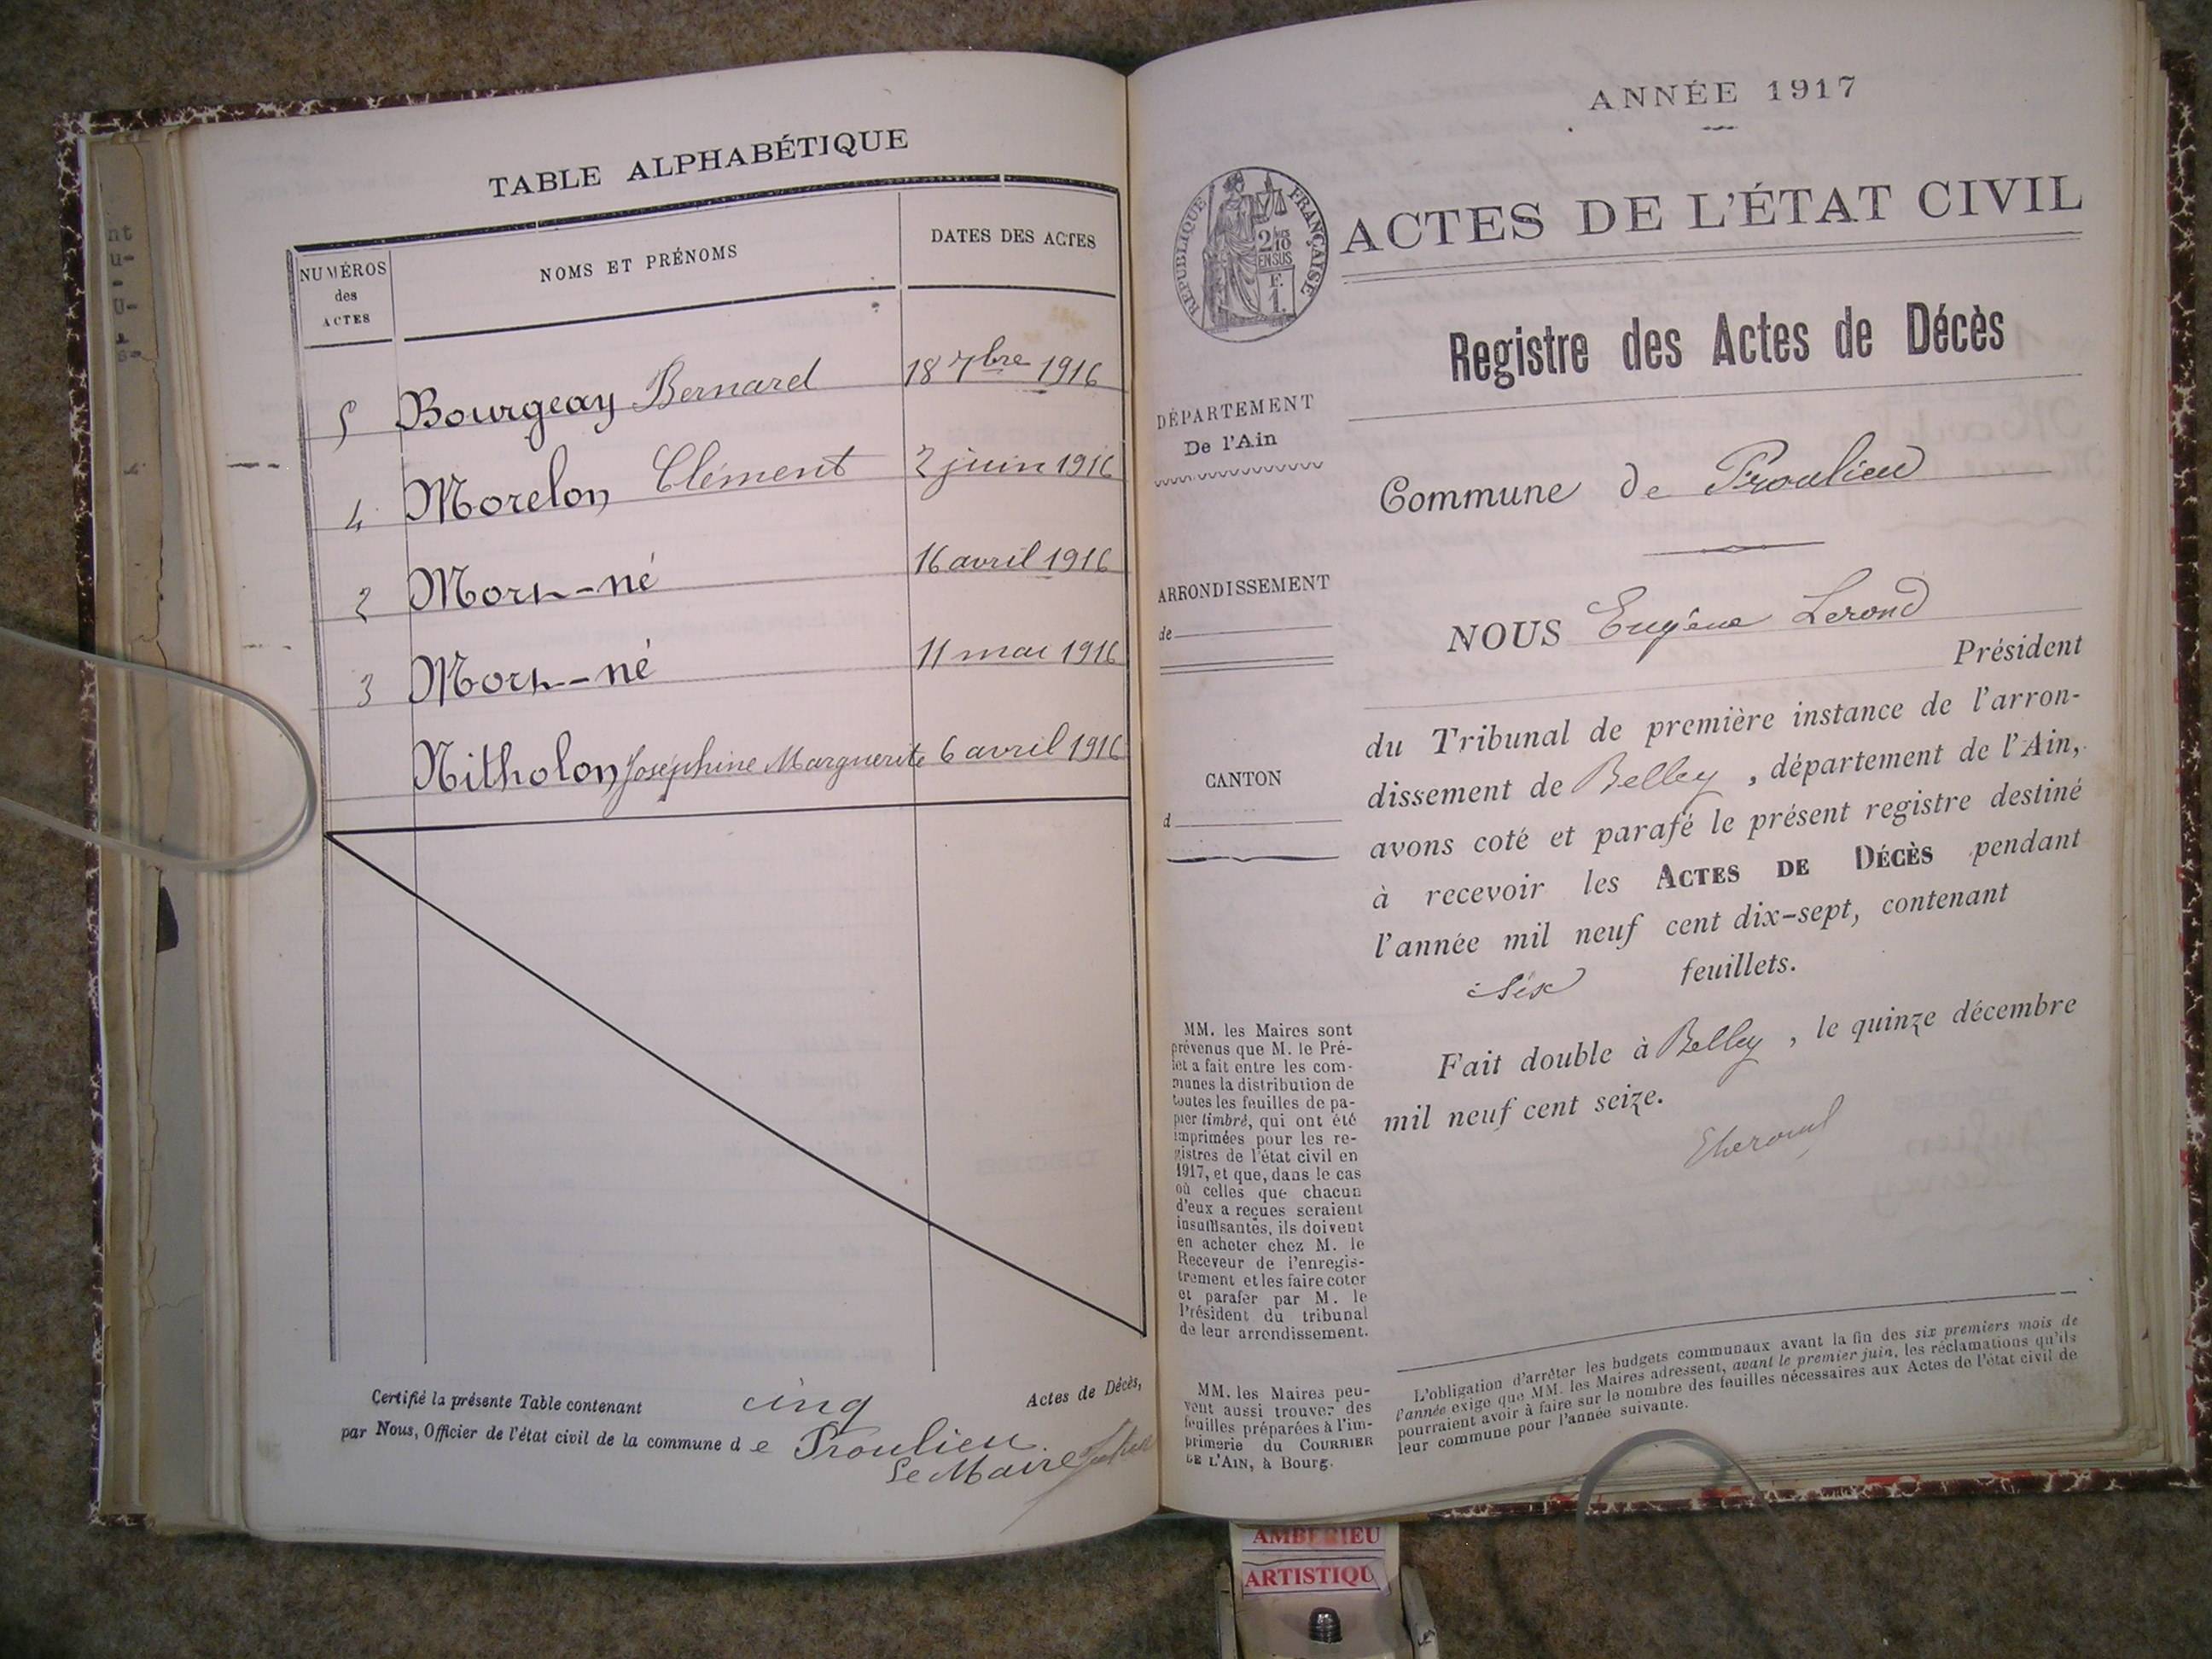 TABLE ALPHABÉTIQUE
NUMÉROS des ACTES
NOMS ET PRÉNOMS
DATES DES ACTES
5 Bourgeay Bernard 18 7bre 1916
4 Morelon Clément 2 juin 1916
2 Mort-né 16 avril 1916
3 Mort-né 11 mai 1916
Nitholon Joséphine Marguerite 6 avril 1916
Certifié la présente Table contenant cinq Actes de Décès,
par Nous, Officier de l'état civil de la commune de Proulieu.
Le Maire
ANNÉE 1917
RÉPUBLIQUE FRANÇAISE
2/10
EN SUS
F.
1.
ACTES DE L'ÉTAT CIVIL
Registre des Actes de Décès
DÉPARTEMENT
De l'Ain
Commune de Proulieu
ARRONDISSEMENT
de
NOUS Eugène Lerond
Président
du Tribunal de première instance de l'arron-
dissement de Belley, département de l'Ain,
avons coté et parafé le présent registre destiné
à recevoir les ACTES DE DÉCÈS pendant
l'année mil neuf cent dix-sept, contenant
six feuillets.
Fait double à Belley, le quinze décembre
mil neuf cent seize.
CANTON
d
MM. les Maires sont
prévenus que M. le Pré-
fet a fait entre les com-
munes la distribution de
toutes les feuilles de pa-
pier timbré, qui ont été
imprimées pour les re-
gistres de l'état civil en
1917, et que, dans le cas
où celles que chacun
d'eux a reçues seraient
insuffisantes, ils doivent
en acheter chez M. le
Receveur de l'enregis-
trement et les faire coter
et parafer par M. le
Président du tribunal
de leur arrondissement.
MM. les Maires peu-
vent aussi trouver des
feuilles préparées à l'im-
primerie du COURRIER
DE L'AIN, à Bourg.
L'obligation d'arrêter les budgets communaux avant la fin des six premiers mois de
l'année exige que MM. les Maires adressent, avant le premier juin, les réclamations qu'ils
pourraient avoir à faire sur le nombre des feuilles nécessaires aux Actes de l'état civil de
leur commune pour l'année suivante.
AMBERIEU
ARTISTIQU